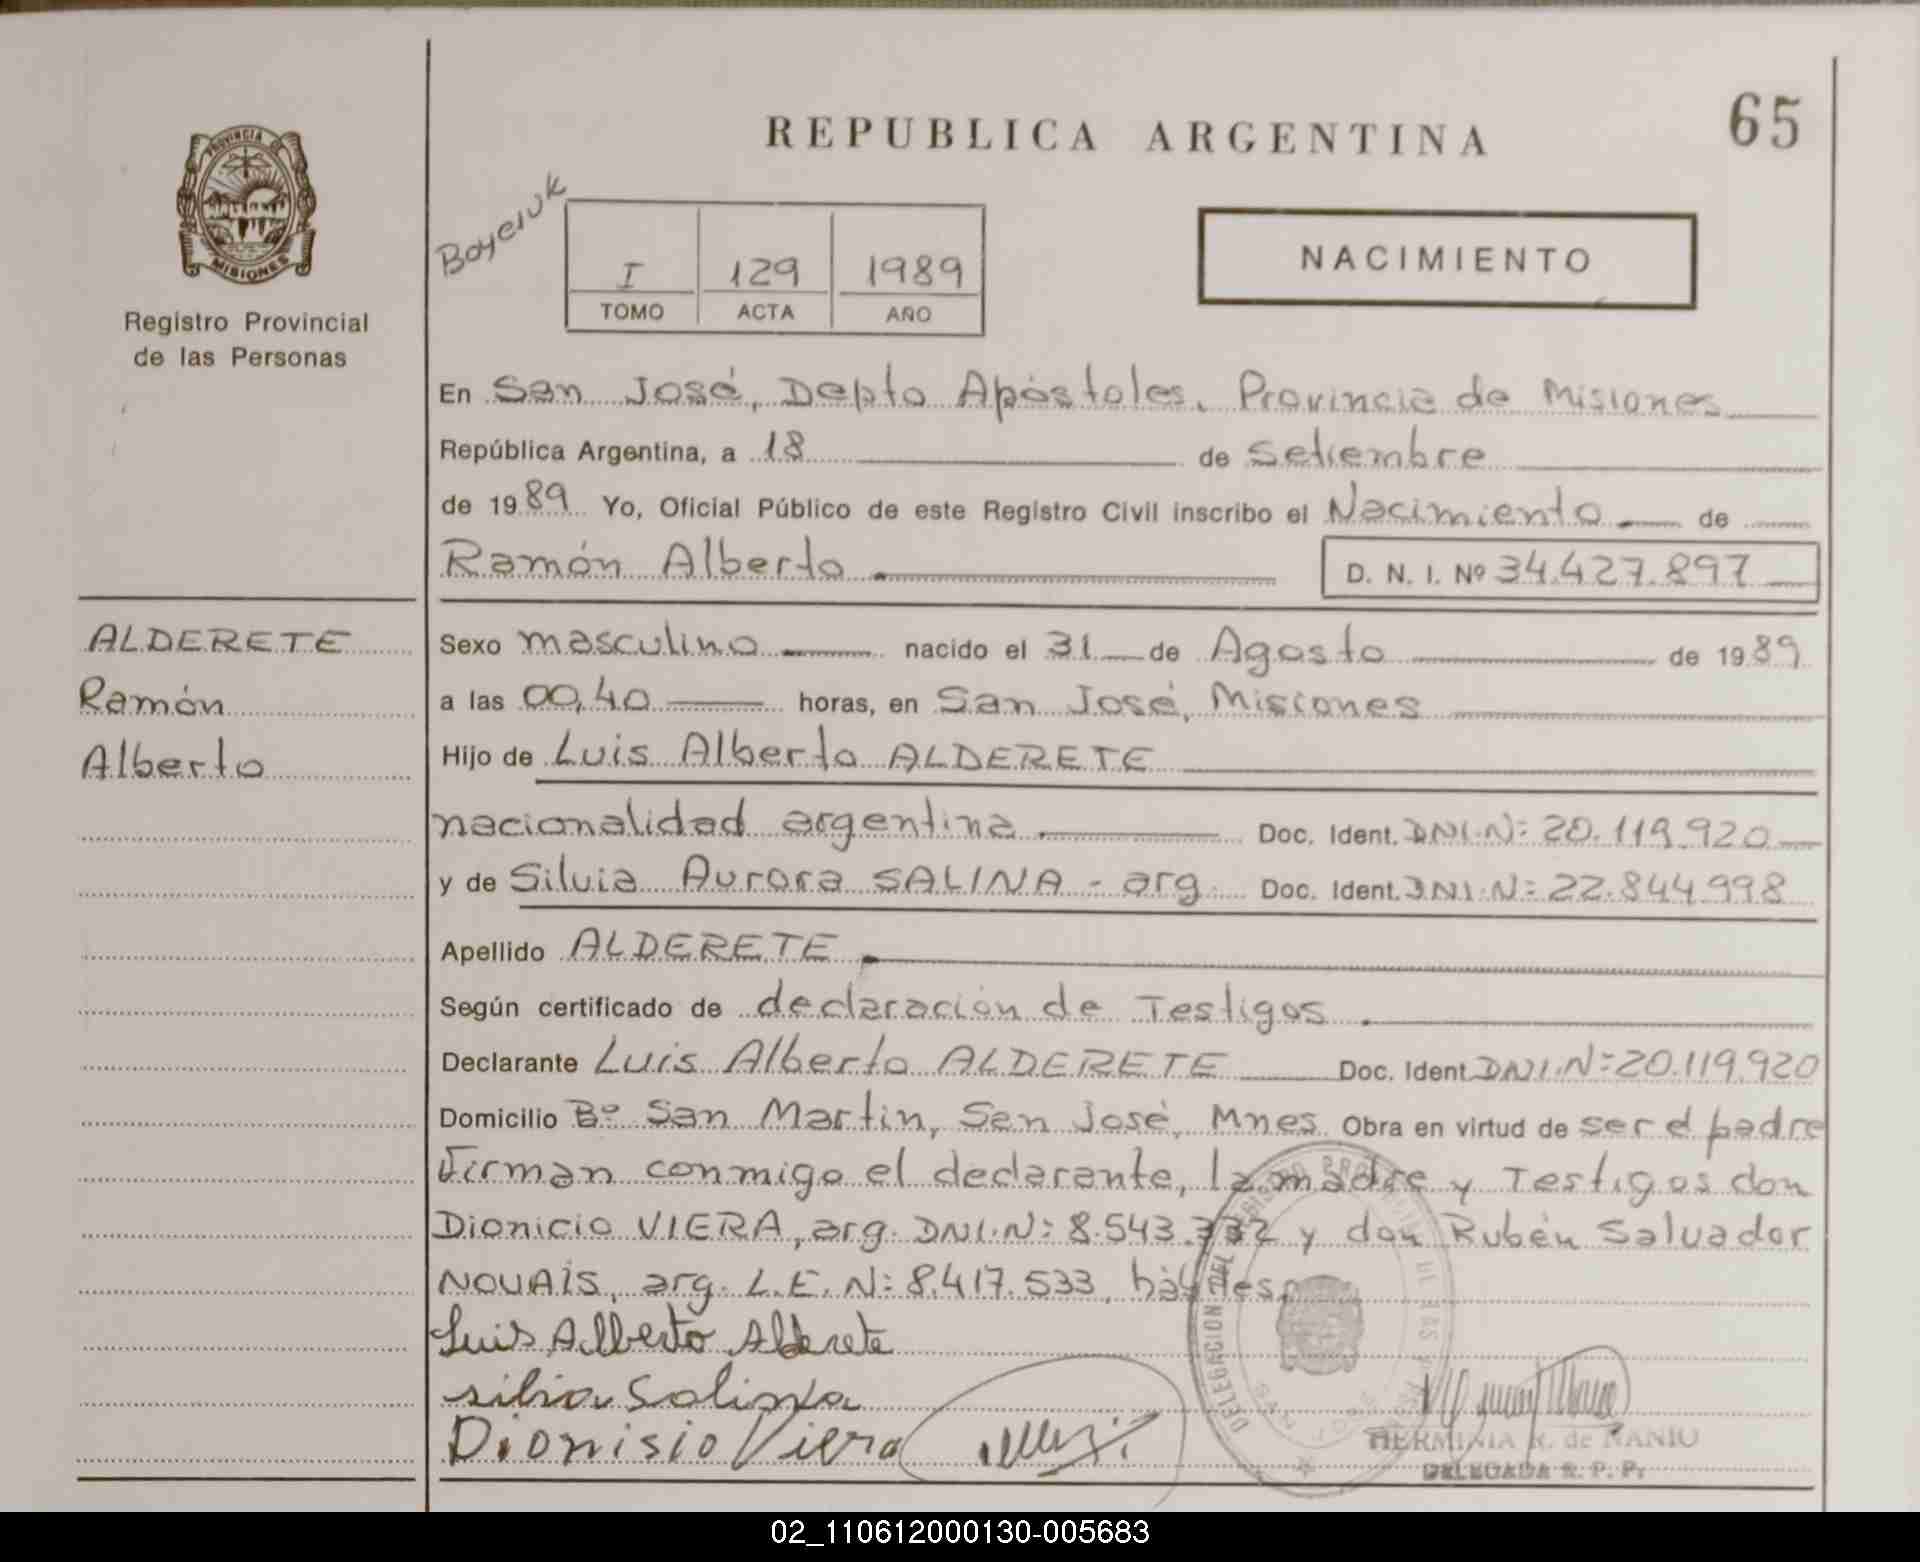 REPUBLICA ARGENTINA
65
PROVINCIA DE
MISIONES
Registro Provincial
de las Personas
Boyeruk
I 129 1989
TOMO ACTA AÑO
NACIMIENTO
En San José, Depto Apóstoles, Provincia de Misiones
República Argentina, a 18 de Setiembre
de 1989 Yo, Oficial Público de este Registro Civil inscribo el Nacimiento de
Ramón Alberto
D. N. I. Nº 34.427.897
ALDERETE
Ramón
Alberto
Sexo masculino nacido el 31 de Agosto de 1989
a las 00,40 horas, en San José, Misiones
Hijo de Luis Alberto ALDERETE
nacionalidad argentina Doc. Ident. DNI.N: 20.119.920
y de Silvia Aurora SALINA - arg. Doc. Ident. DNI.N: 22.844.998
Apellido ALDERETE
Según certificado de declaración de Testigos
Declarante Luis Alberto ALDERETE Doc. Ident DNI.N: 20.119.920
Domicilio Bº San Martin, San José, Mnes. Obra en virtud de ser el padre
Firman conmigo el declarante, la madre y Testigos don
Dionicio VIERA, arg. DNI.N: 8.543.332 y don Rubén Salvador
NOVAIS, arg. L.E. N: 8.417.533, hábiles.
Luis Alberto Alderete
silvia Salina
Dionisio Viera
DELEGACION DEL
HERMINIA R. de NANIU
DELEGADA R. P. P.
02_110612000130-005683